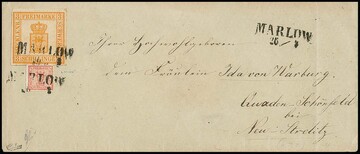 FREIMARKE
MARLOW
MARLOW
MARLOW
26/
dem Fräulein Ida von Warburg.
Quaden-Schönfeld
bei
Neu-Strelitz